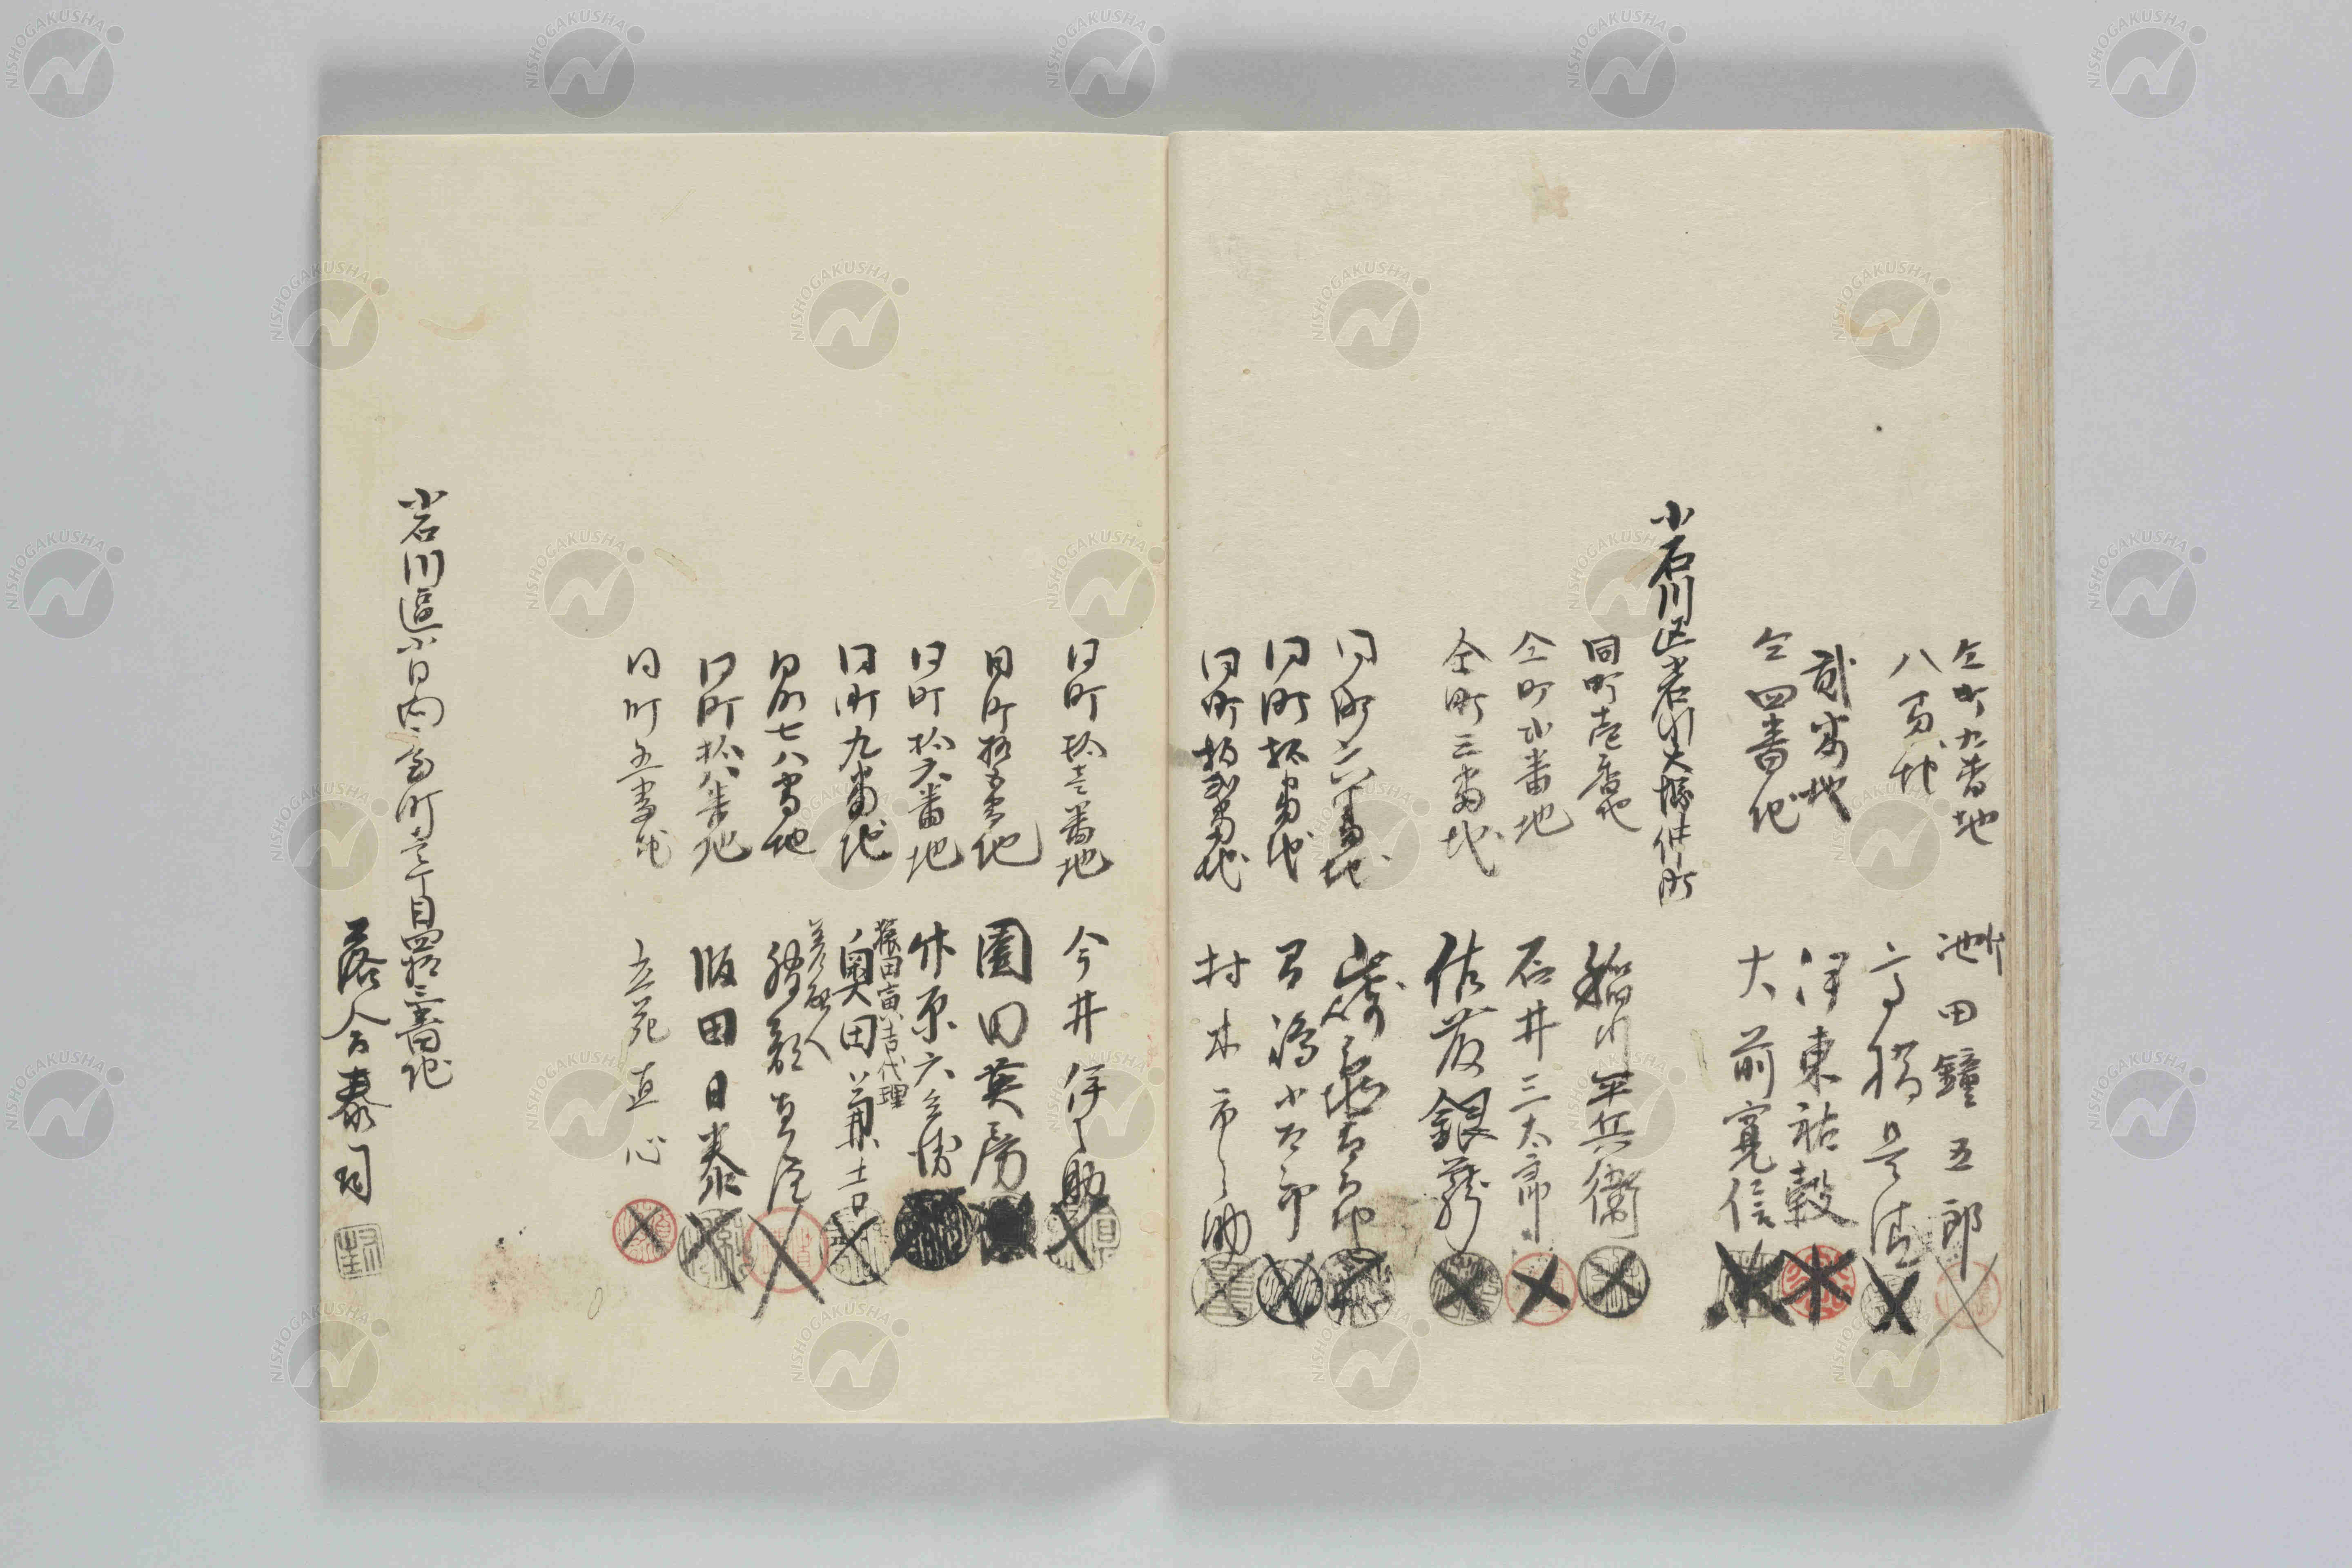 仝町九番地
池田鐘五郎
八番地
高橋
貳番地
伊東祐穀
仝四番地
大前寛信
小石川区小石川大塚仲町
同町壱番地
稲川平兵衛
仝町弐番地
石井三太郎
仝町三番地
佐藤銀蔵
同町六番地
同町拾番地
同町拾弐番地
村木市之助
同町拾壱番地
今井伊之助
同町拾五番地
園田英房
同町拾六番地
休原六兵衛
同町九番地
猿田寅吉代理
奥田兼吉
同町七八番地
差配人
同町拾八番地
阪田日泰
同町五番地
立苑直心
小石川區小日向台町壱丁目四拾三番地
落合泰司
NISHOGAKUSHA